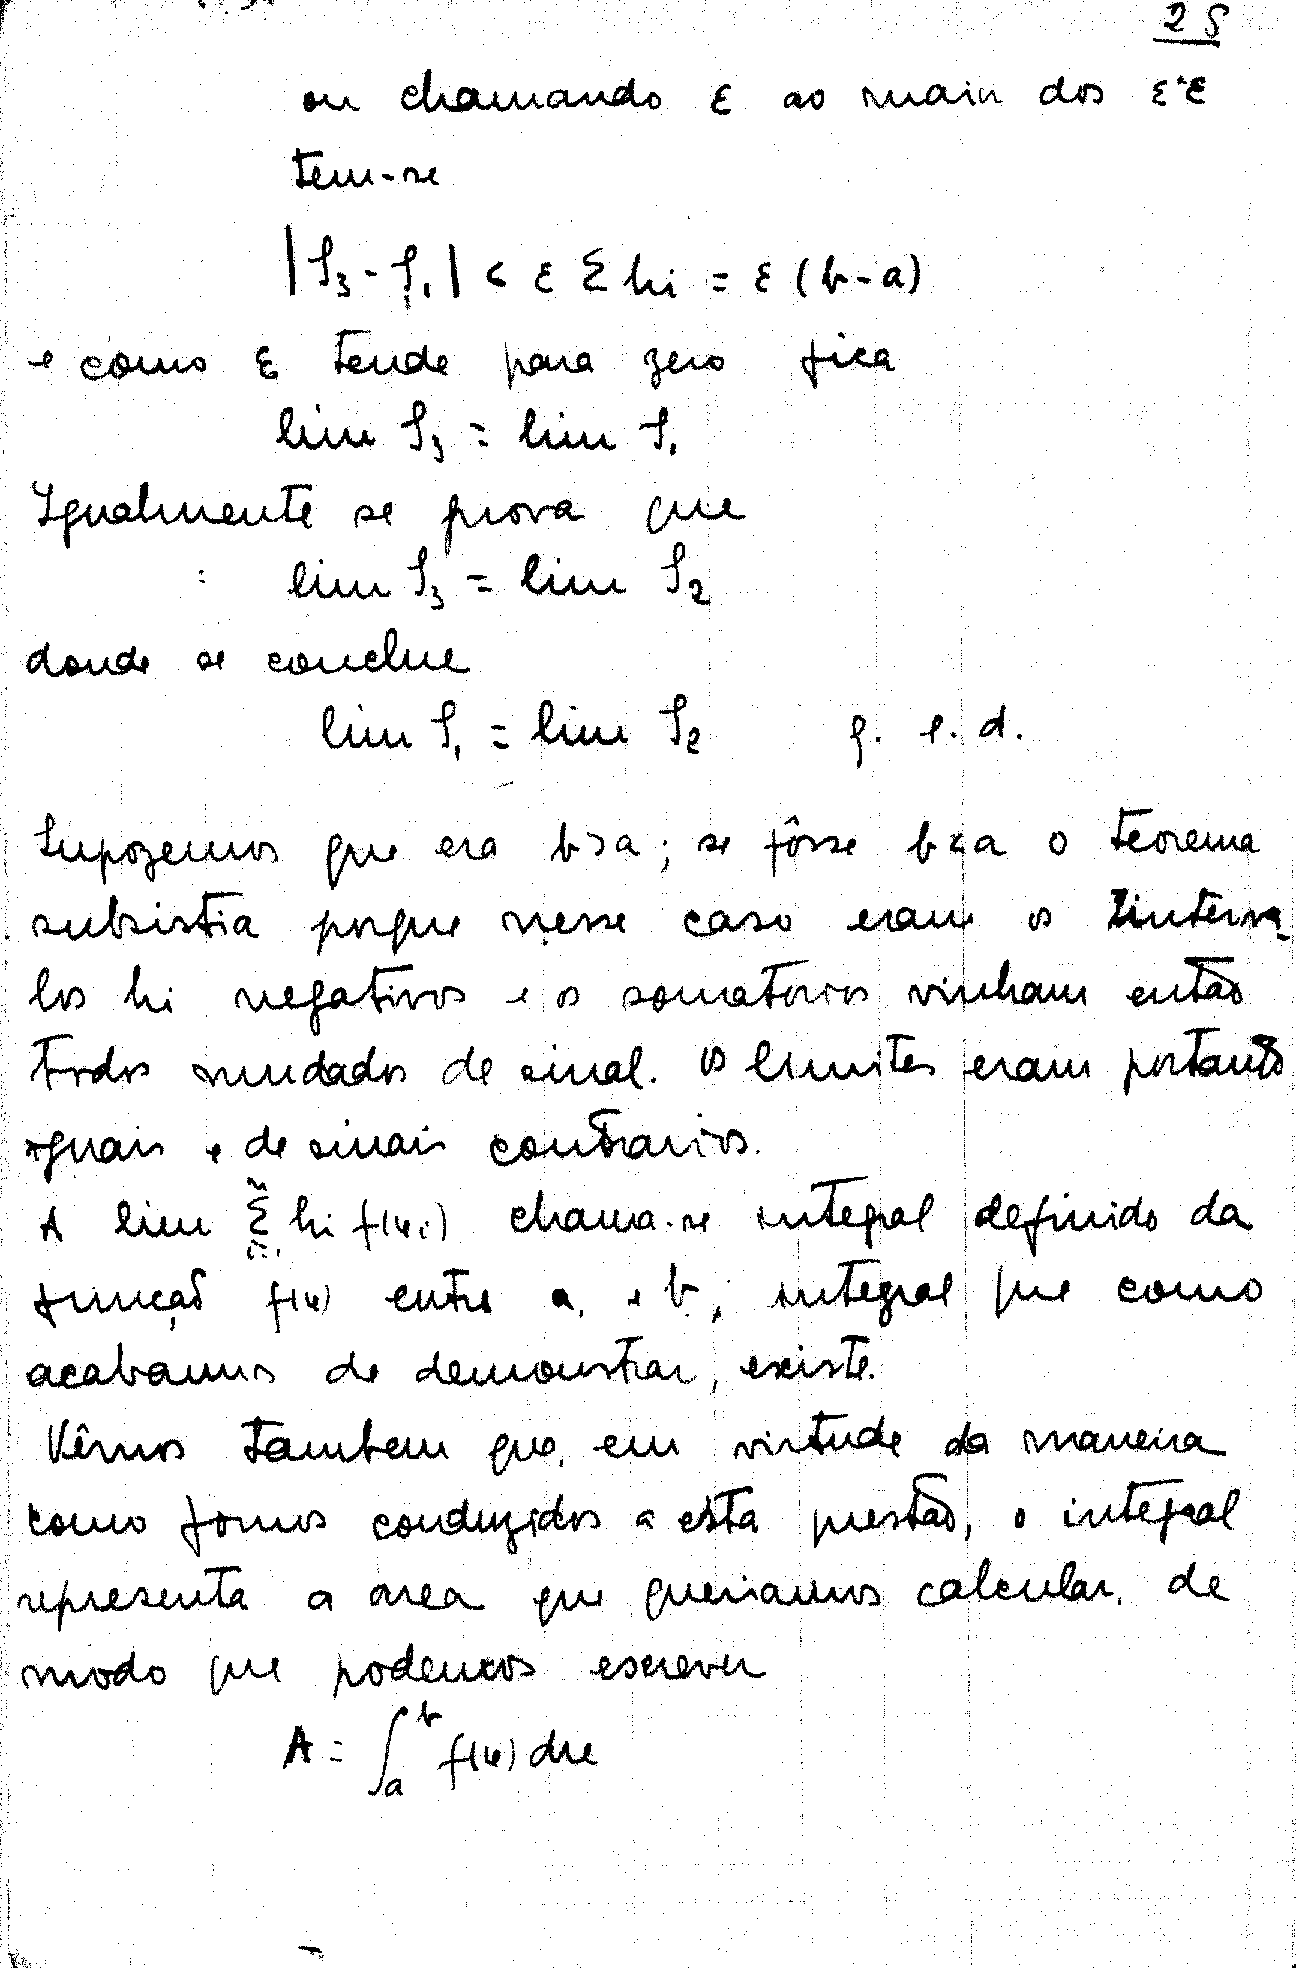 25
ou chamando ε ao maior dos ε'ε
tem-se
|S₃ - S₁| < ε Σ hi = ε (b-a)
e como ε tende para zero fica
lim S₃ = lim S₁
Igualmente se prova que
lim S₃ = lim S₂
donde se conclue
lim S₁ = lim S₂ q. e. d.
Supozemos que era b>a; se fôsse b<a o teorema
subsistia porque nesse caso eram os interva-
los hi negativos e os somatorios vinham então
todos mudados de sinal. Os limites eram portanto
iguais e de sinais contrarios.
A lim Σ hi f(xi) chama-se integral definido da
função f(x) entre a e b, integral que como
acabamos de demonstrar, existe.
Vêmos tambem que, em virtude da maneira
como fomos conduzidos a esta questão, o integral
representa a area que queriamos calcular, de
modo que podemos escrever
A = ∫ₐᵇ f(x) dx